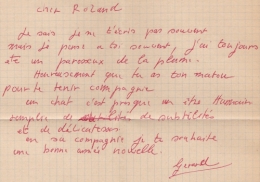 cher Roland
Je sais je ne t'écris pas souvent
mais je pense a toi souvent, j'ai toujours
été un paresseux de la plume.
Heureusement que tu as ton matou
pour te tenir compagnie
un chat c'est presque un être humain
remplis de subtilités
et de délicatesses
en sa compagnie je te souhaite
une bonne année nouvelle.
Gerard